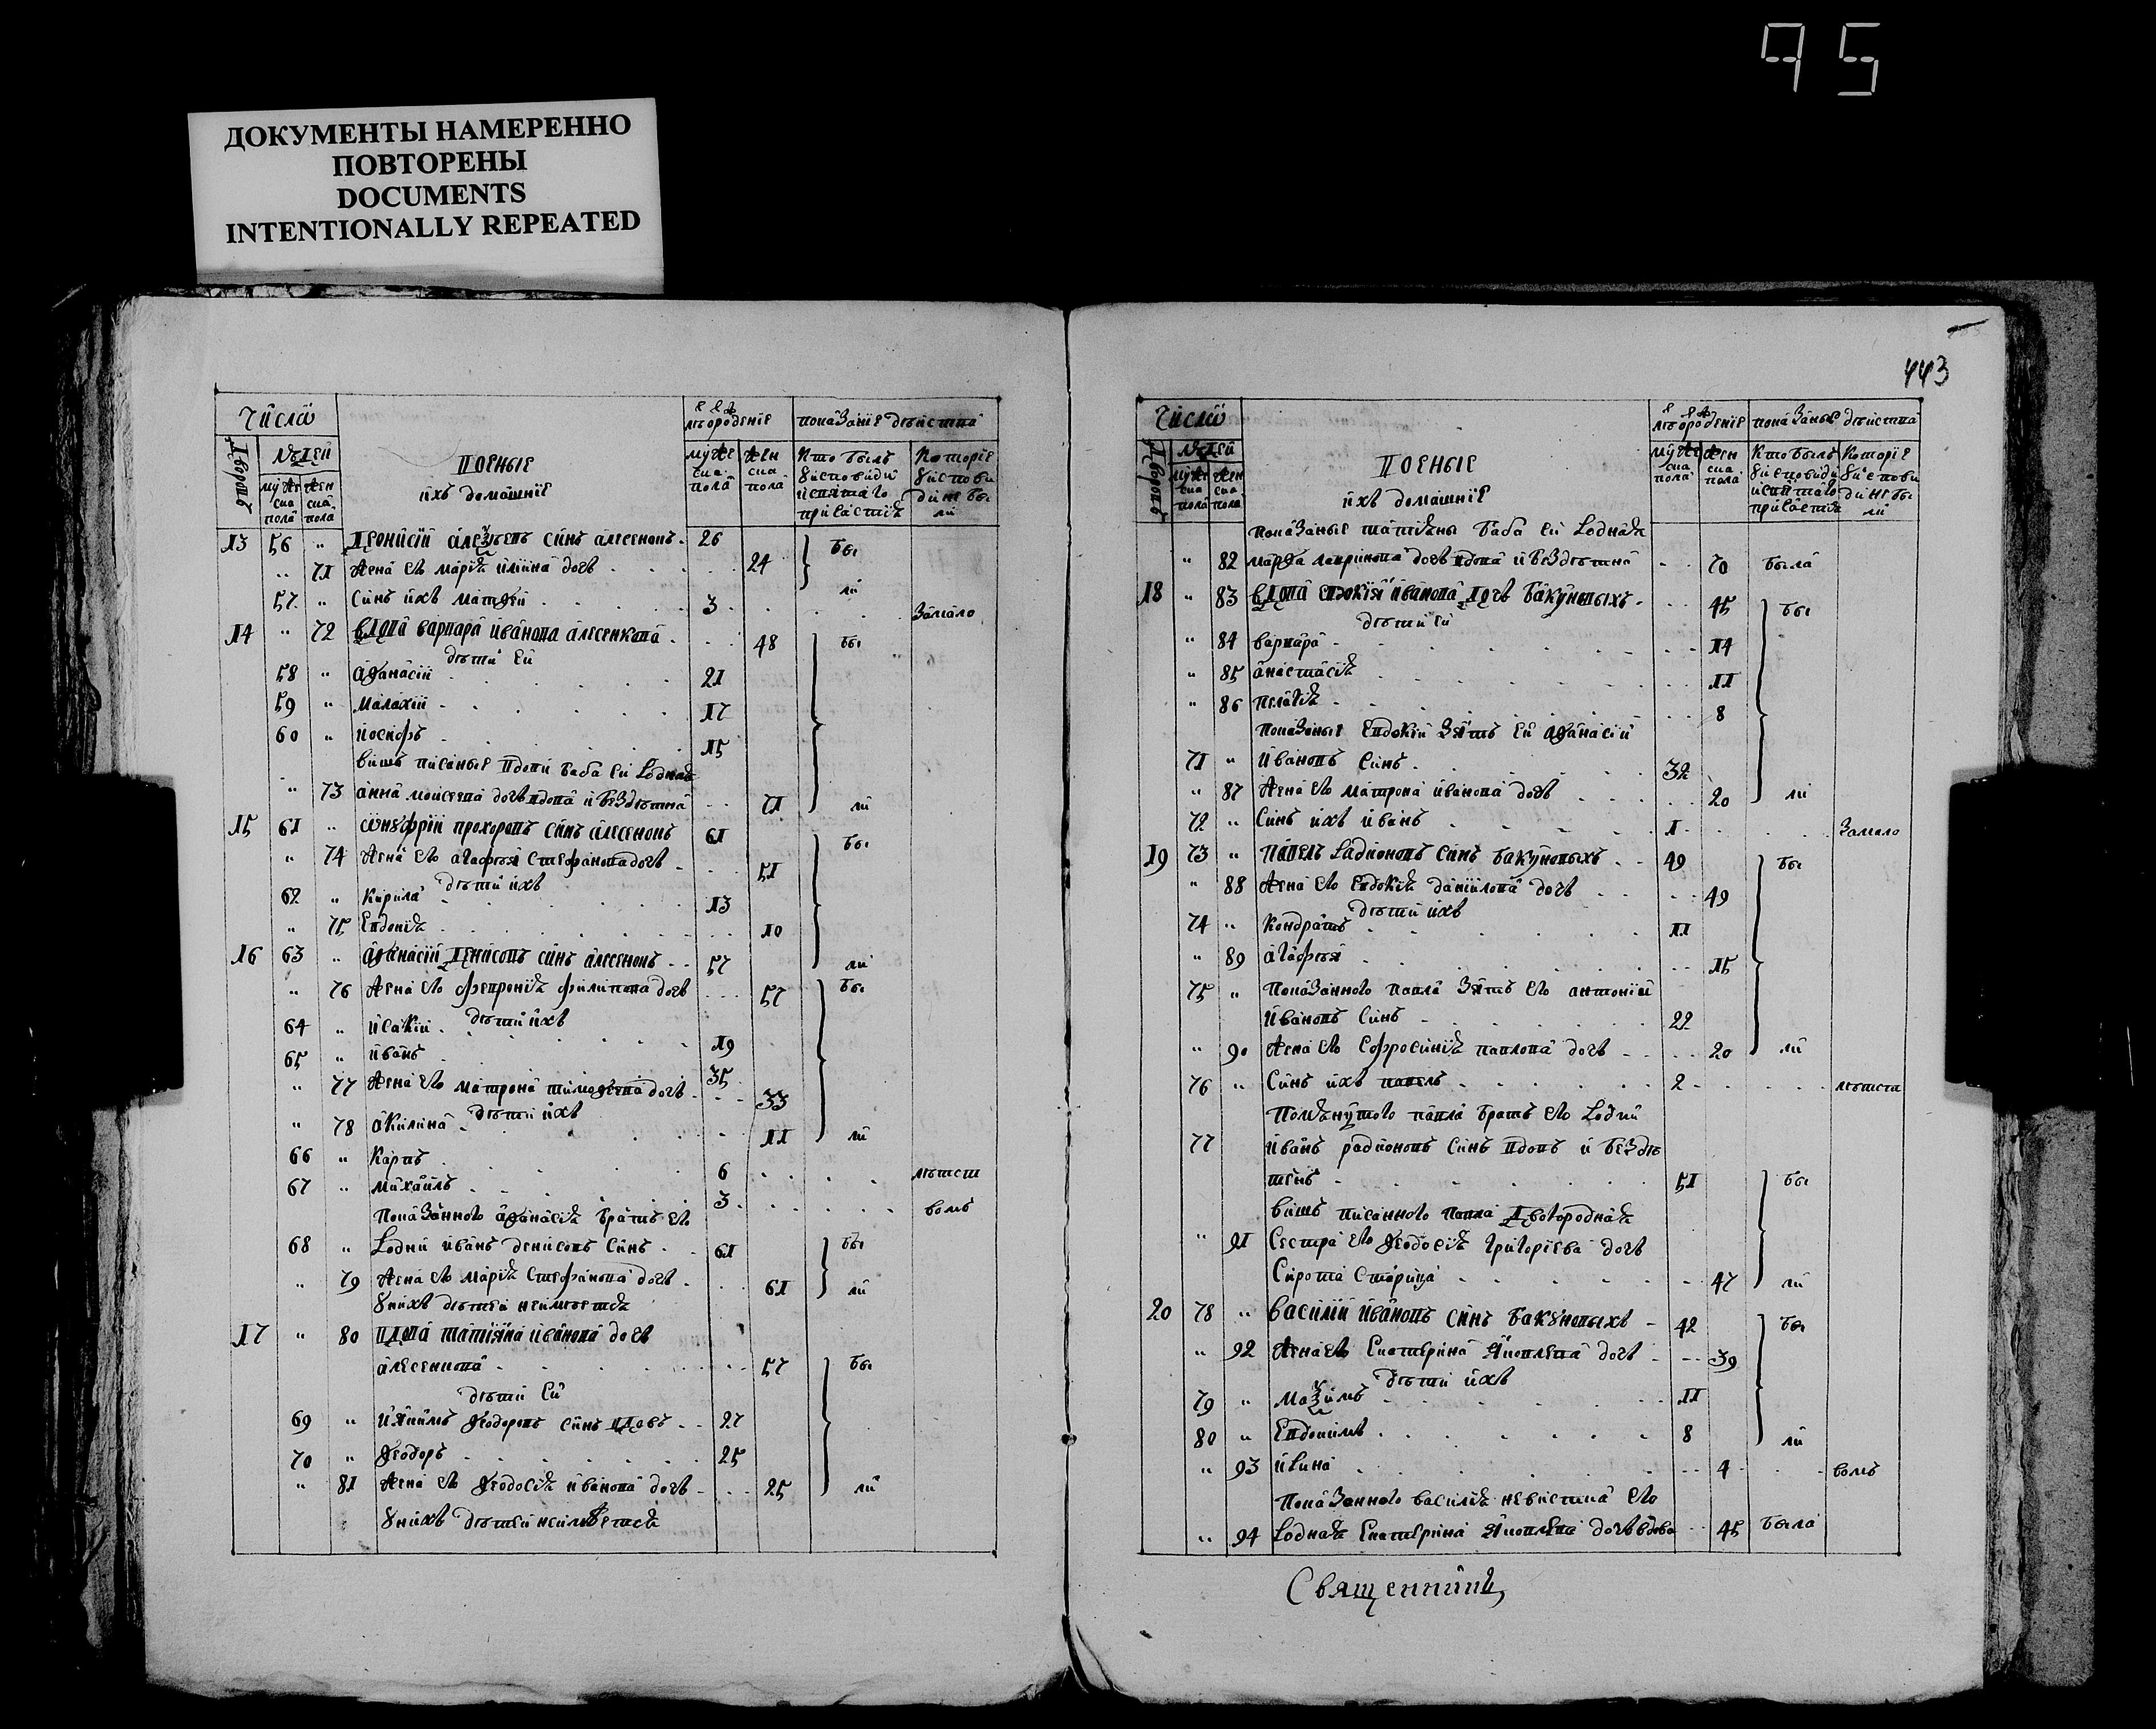 95
ДОКУМЕНТЫ НАМЕРЕННО
ПОВТОРЕНЫ
DOCUMENTS
INTENTIONALLY REPEATED
443
Число
Дворовъ
Людей
муже
ска
пола
жен
ска
пола
Военные
ихъ домашніе
лѣторожденіе
муже
ска
пола
жен
ска
пола
показаніе дѣйства
Кто былъ
ꙋисповѣди
исвятаго
причастія
Которіе
ꙋисповѣ
ди не бы
ли
13 56 " Деонисій алеѯѣевъ синъ алесеновъ 26 бы
" 71 жена его марія иліина дочь 24 ли
57 " Синъ ихъ матѳей 3 Замало
14 " 72 вдова варвара иванова алесенкова 48 бы
дѣти ей
58 " аѳанасій 21
59 " малахій 17
60 " іосифъ 15
вишъ писаныє вдови баба ей Lодная
" 73 анна моисеева дочь вдова и бездѣтна 71 ли
15 61 " онꙋфрій прохоровъ синъ алесеновъ 61 бы
" 74 жена его агафія Стефанова дочь 51
дѣти ихъ
62 " Кирила 13
" 75 Евдокія 10
16 63 " аѳанасій Денисовъ синъ алесеновъ 57 ли
" 76 жена его февронія филипова дочь 57 бы
дѣти ихъ
64 " исакій 19
65 " иванъ 35
" 77 жена его матрона тимоѳеева дочь 33
дѣти ихъ
" 78 акилина 11 ли
66 " Карпъ 6 лѣтст
67 " михаилъ 3 вомъ
Показанного аѳанасія братъ его
68 " Lодни иванъ денисовъ Синъ 61 бы
" 79 жена его марія Стефанова дочь 61 ли
ꙋнихъ дѣтей неимѣется
17 " 80 вдова татіяна иванова дочь
алесенкова 57 бы
дѣти ей
69 " іякимъ ѳеодоровъ синъ вдовъ 27
70 " ѳеодоръ 25
" 81 жена его ѳеодосія иванова дочь 25 ли
ꙋнихъ дѣтей неимѣется
Число
Дворовъ
Людей
муже
ска
пола
жен
ска
пола
Военные
ихъ домашніе
лѣторожденіе
муже
ска
пола
жен
ска
пола
показаныє дѣйства
Кто былъ
ꙋисповѣди
исвятаго
причастія
Которіе
ꙋисповѣ
ди не бы
ли
показаныє татіяны баба ей Lодная
" 82 марѳа лавринова дочь вдова и бездѣтна 70 была
18 " 83 вдова евдокія иванова дочь бакуновыхъ 45 бы
дѣти ей
" 84 варвара 14
" 85 анастасія 11
" 86 пелагія 8
показаныє Евдокіи зять ей аѳанасій
71 " ивановъ Синъ 32
" 87 жена его матрона иванова дочь 20 ли
72 " Синъ ихъ иванъ 1 Замало
19 73 " павелъ Lадионовъ синъ бакуновыхъ 49 бы
" 88 жена его Евдокія даниилова дочь 49
дѣти ихъ
74 " Кондратъ 11
" 89 агафія 15
75 " Показанного павла зять его антоній
ивановъ Синъ 22
" 90 жена его Софросинія павлова дочь 20 ли
76 " Синъ ихъ павелъ 2 лѣтста
Помянутого павла братъ его Lодни
77 иванъ радионовъ Синъ вдовъ и бездѣ
тенъ 51 бы
вишъ писанного павла двоюродная
" 91 Сестра его ѳеодосія григоріева дочь
Сирота Старица 47 ли
20 78 " василій ивановъ синъ бакꙋновыхъ 42 бы
" 92 жена его Екатерина яковлева дочь 39
дѣти ихъ
79 " маѯимъ 11
80 " Евдокимъ 8 ли
" 93 ирина 4 вомъ
Показанного василія невистка его
" 94 Lодная Екатерина яковлева дочь вдова 45 была
Священникъ